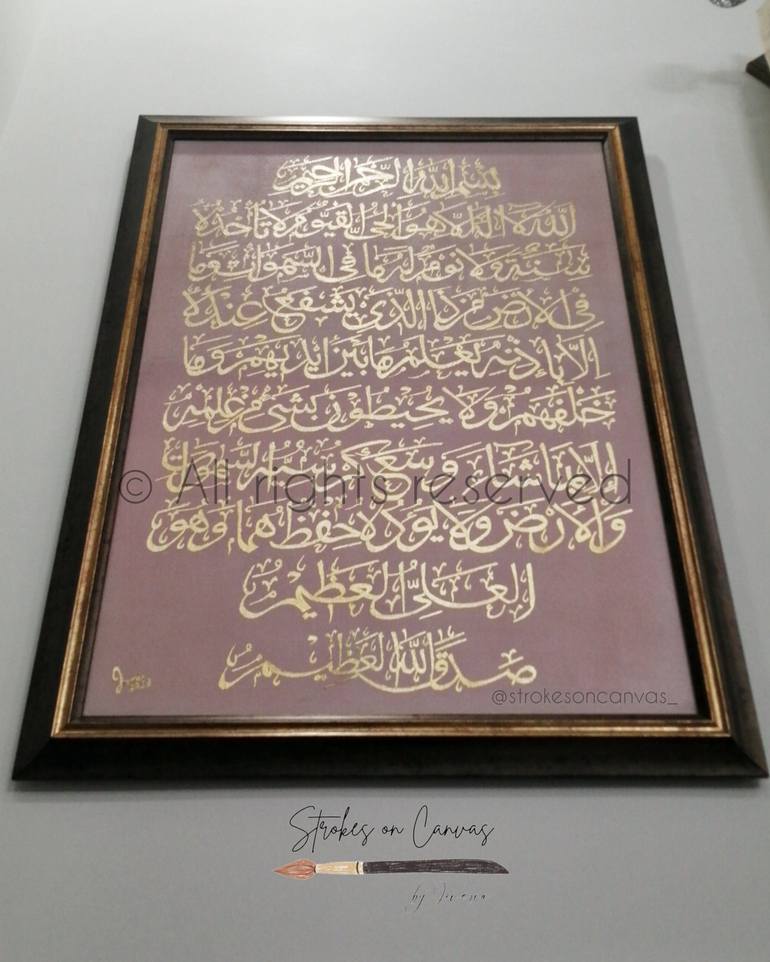 بسم الله الرحمن الرحيم
الله لا اله الا هو الحي القيوم لا تأخذه
سنة ولا نوم له ما في السموات وما
في الارض من ذا الذي يشفع عنده
الا بإذنه يعلم ما بين ايديهم وما
خلفهم ولا يحيطون بشيء من علمه
الا بما شاء وسع كرسيه السموات
والأرض ولا يؤده حفظهما وهو
العلي العظيم
صدق الله العظيم
© All rights reserved
@strokesoncanvas_
Strokes on Canvas
by